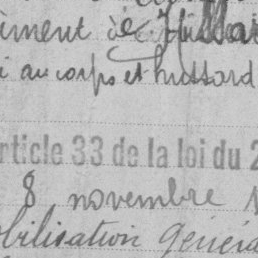 iment de Hussar
i au corps et hussard
rticle 33 de la loi du 2
8 novembre 1
bilisation généra